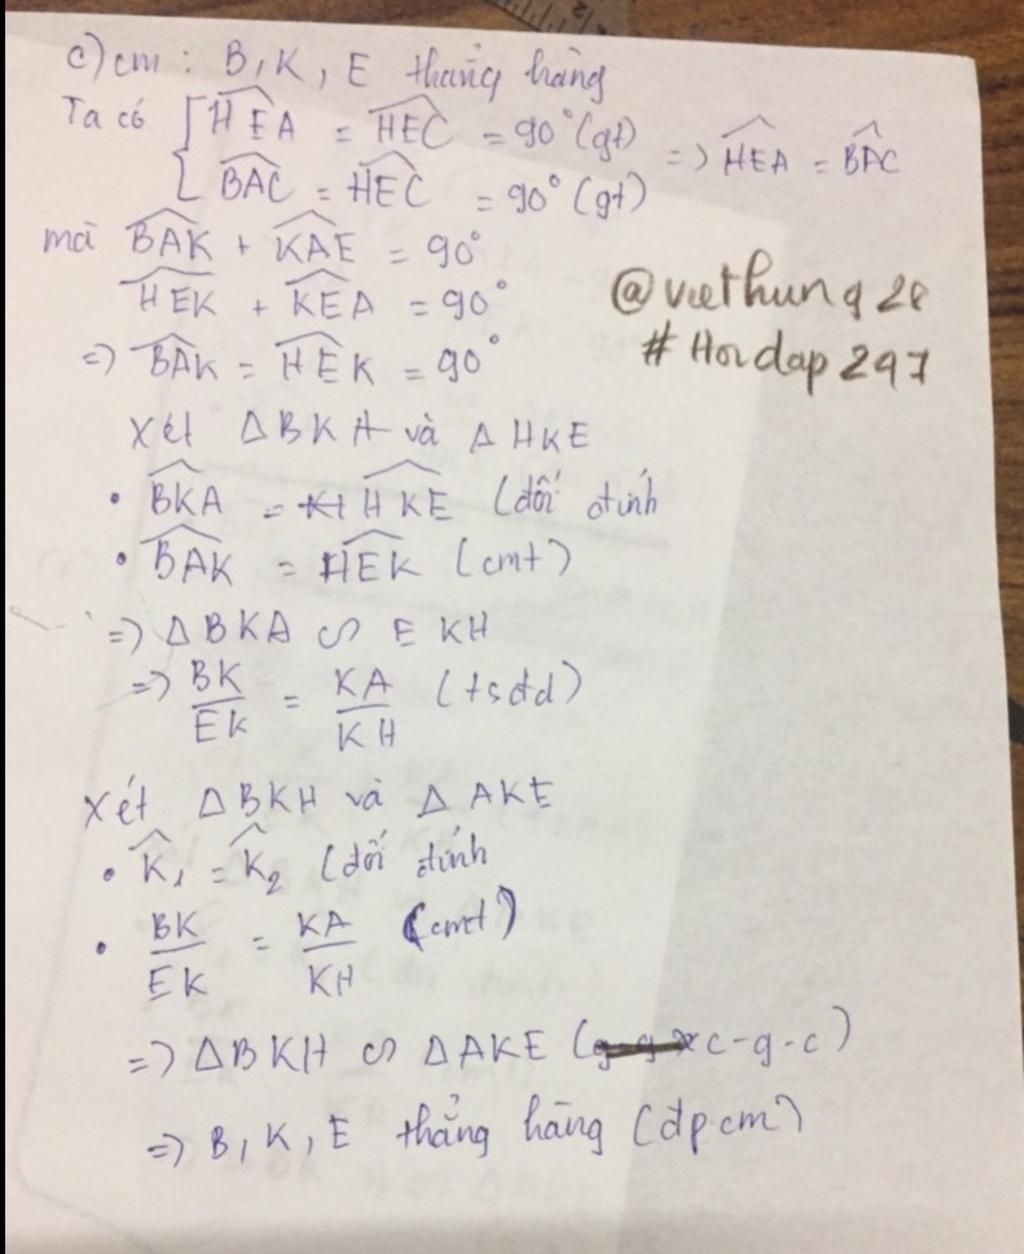 c) cm : B, K, E thẳng hàng
Ta có { HEA = HEC = 90° (gt) => HEA = BAC
BAC = HEC = 90° (gt)
mà BAK + KAE = 90°
HEK + KEA = 90°
=> BAK = HEK = 90°
@viethung28
#Hoidap247
Xét ΔBKH và ΔHKE
• BKA = HKE (đối đỉnh
• BAK = HEK (cmt)
=> ΔBKA ∽ EKH
=> BK/EK = KA/KH (tsđd)
Xét ΔBKH và ΔAKE
• K₁ = K₂ (đối đỉnh
• BK/EK = KA/KH (cmt)
=> ΔBKH ∽ ΔAKE (c-g-c)
=> B, K, E thẳng hàng (đpcm)